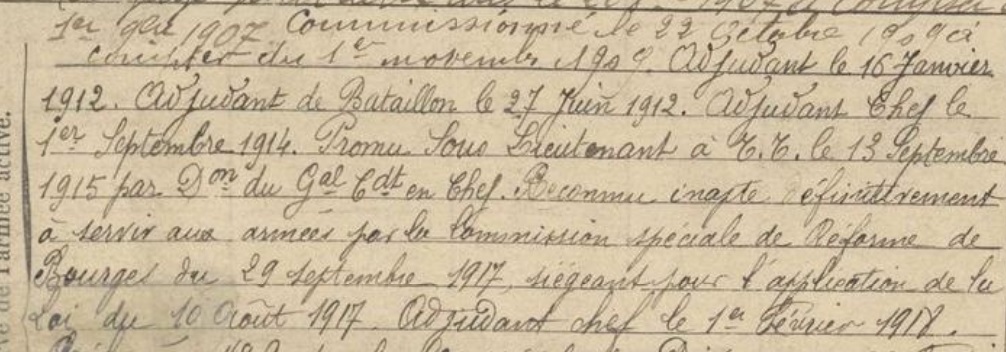 1er 9bre 1907 Commissionné le 22 Octobre 1909 à
compter du 1er novembre 1909. Adjudant le 16 Janvier
1912. Adjudant de Bataillon le 27 Juin 1912. Adjudant Chef le
1er Septembre 1914. Promu Sous Lieutenant à T.T. le 13 Septembre
1915 par Don du Gal Cdt en Chef. Reconnu inapte définitivement
à servir aux armées par la Commission spéciale de Réforme de
Bourges du 29 septembre 1917, siégeant pour l'application de la
Loi du 10 Août 1917. Adjudant chef le 1er Février 1918.
de l'armée active.